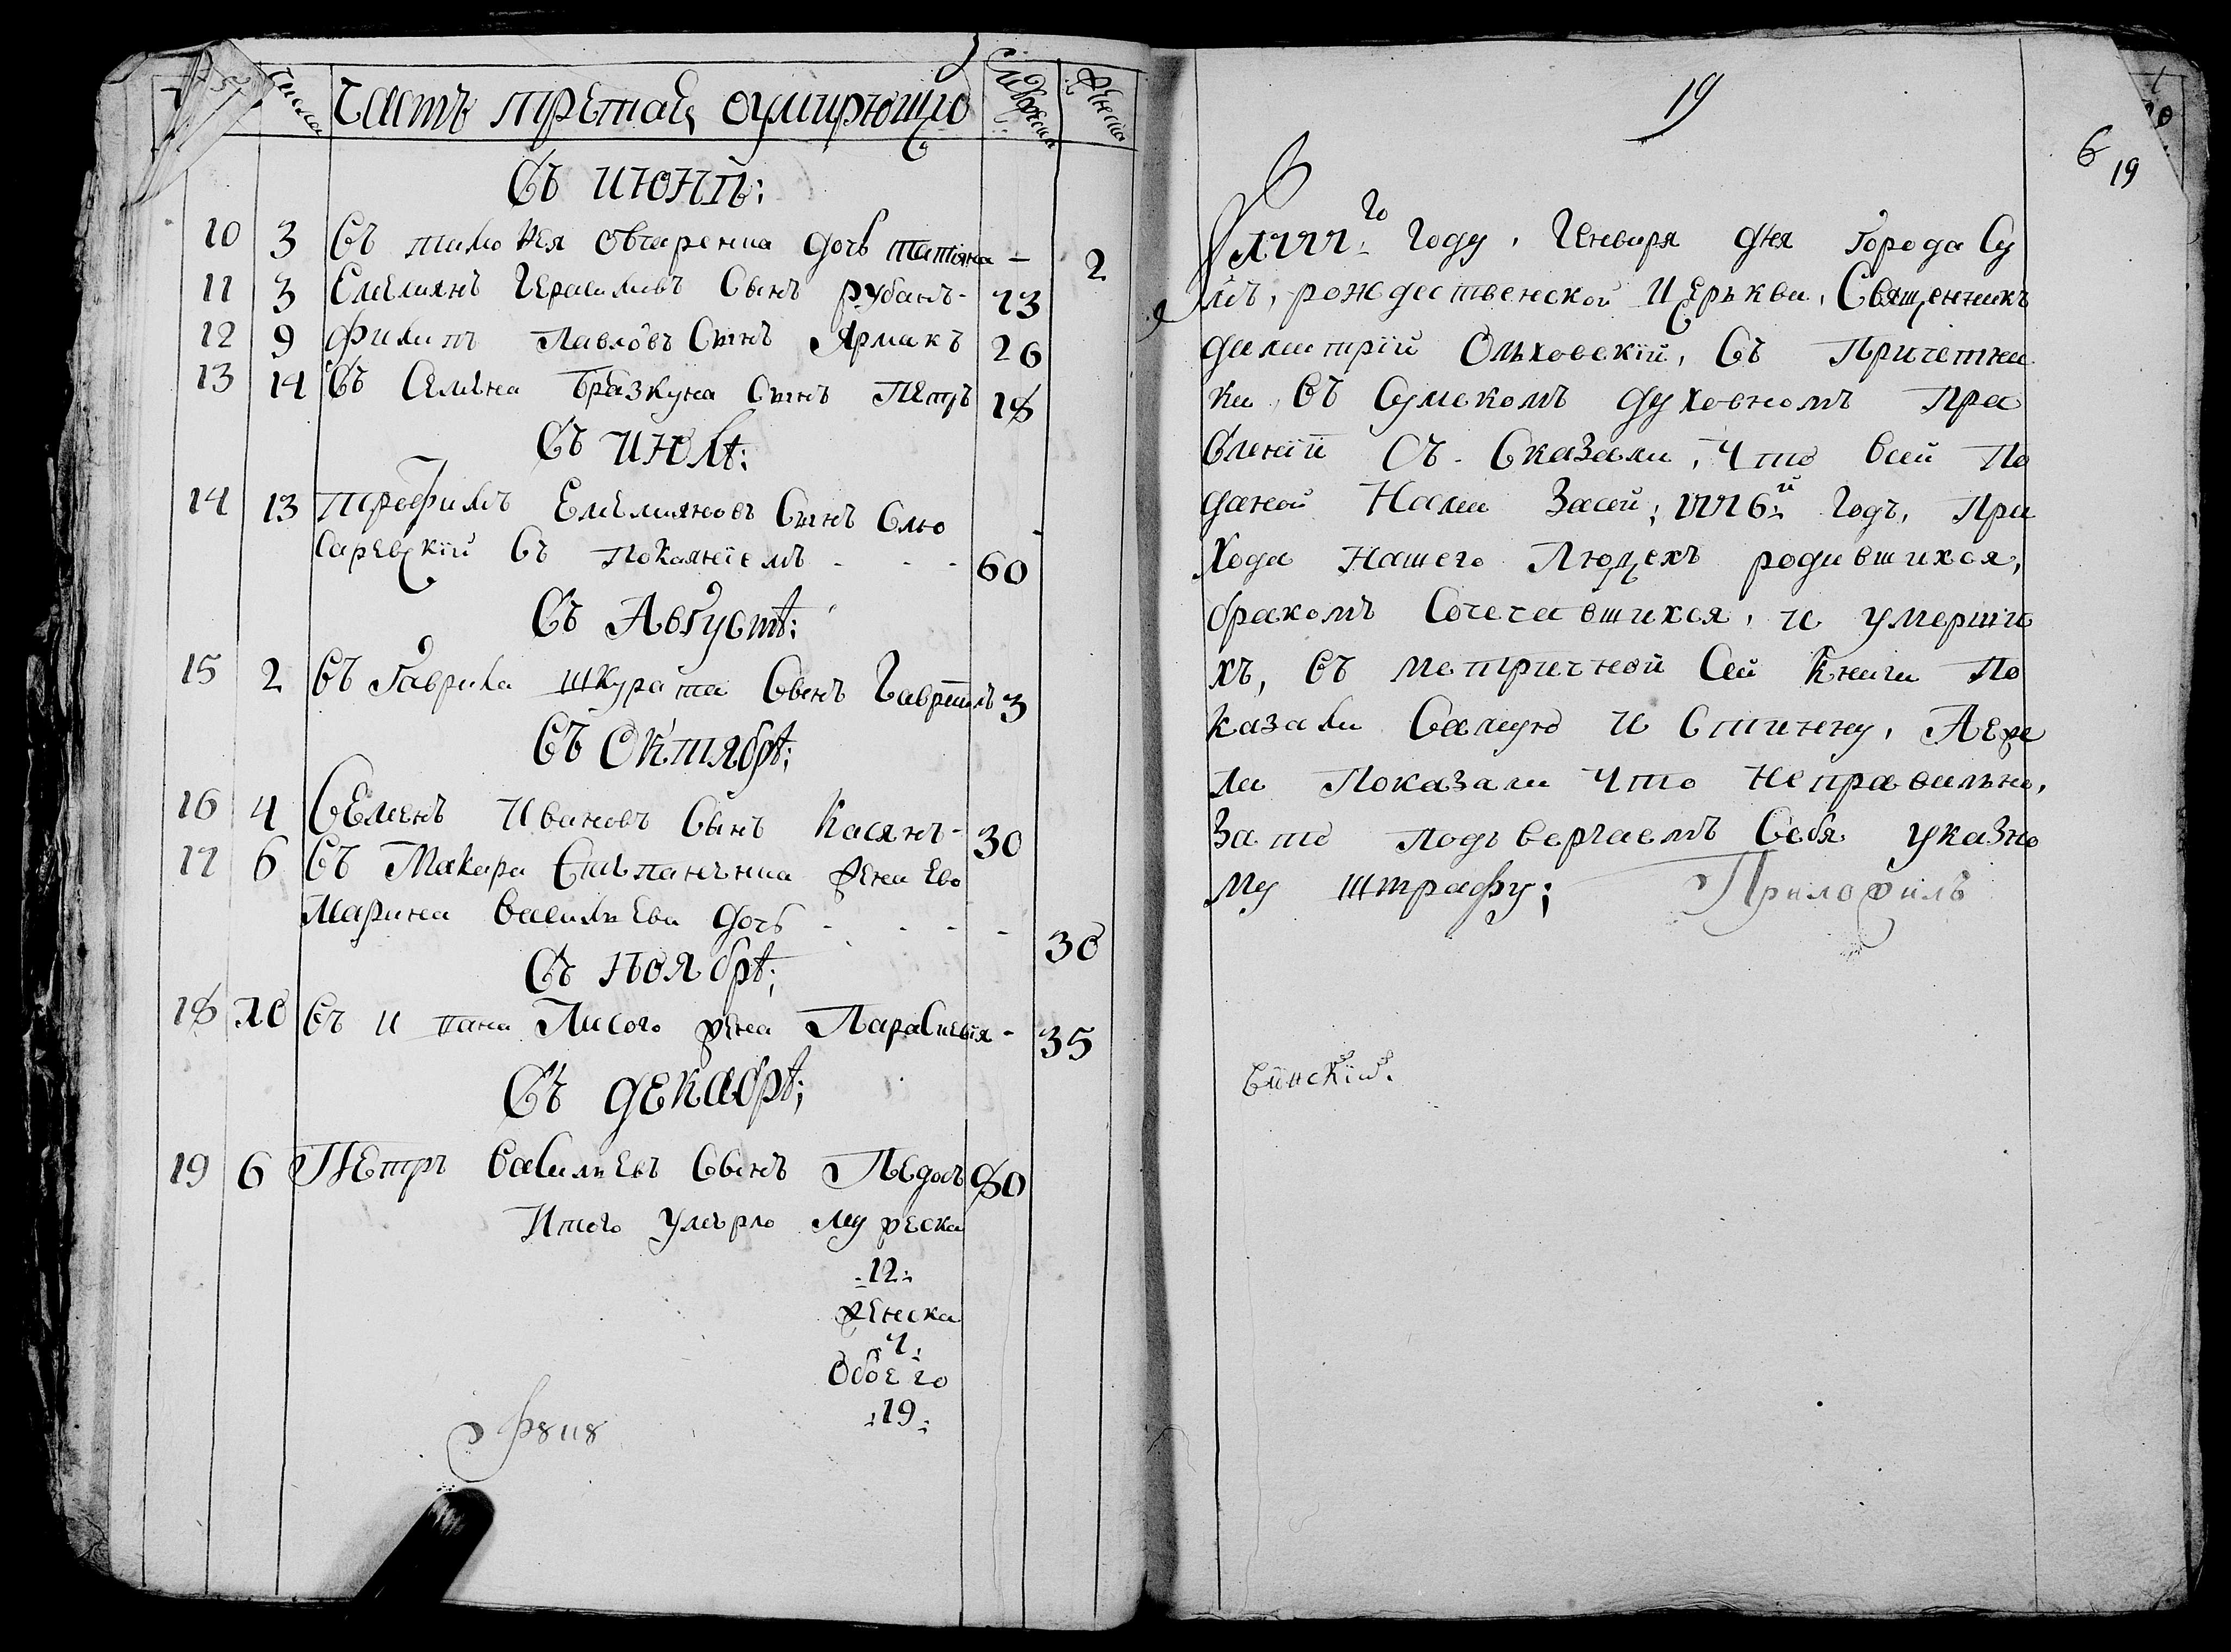 числа Часть третая оумирющи
въ июнѣ:
10 3 въ тимофея овчаренка дочь татияна – 2
11 3 Емелиянъ Герасимовъ Сынъ рубанъ- 73
12 9 филипъ Павловъ Сынъ Ярмакъ 26
13 14 въ Семена бразкуна Сынъ Петръ 18
въ июлѣ:
14 13 трофимъ Емелияновъ Сынъ Слю
саревский съ Покаяниемъ - - - 60
въ Августѣ:
15 2 въ Гаврила шкурата Сынъ Гавриилъ 3
въ Октябрѣ:
16 4 Семенъ Ивановъ Сынъ Касянъ- 30
17 6 въ Макара Степаненка жена Ево
Марина васильева дочь - - - - 30
въ ноябрѣ;
18 20 въ и пана Лисого жена Параскевия- 35
въ декабрѣ;
19 6 Петръ васильевъ Сынъ Педосъ 80
Итого умерло мужеска
:12:
женска
:7:
Обоего
:19:
19
6
19
1777го Году, Генваря дня города Су
мъ, рождественской Церькви, Священникъ
димитрий Ольховский, Съ Причетни
ки, въ Сумскомъ духовномъ Пра
влении Съ-Сказали, Что всей По
даной Нами Засей; 1776:й Годъ, При
хода нашего Людехъ родившихся,
бракомъ Сочетавшихся, и умерши
хъ, въ метричной Сей Книги По
казали Самую и Стинну, Аеже
ли Показали Что неправильно,
зато подъвергаемъ Себя указно
му штрафу; Приложилъ